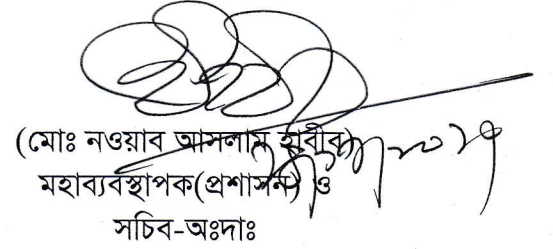 (মোঃ নওয়াব আসলাম হাবীব)
মহাব্যবস্থাপক(প্রশাসন) ও
সচিব-অঃদাঃ